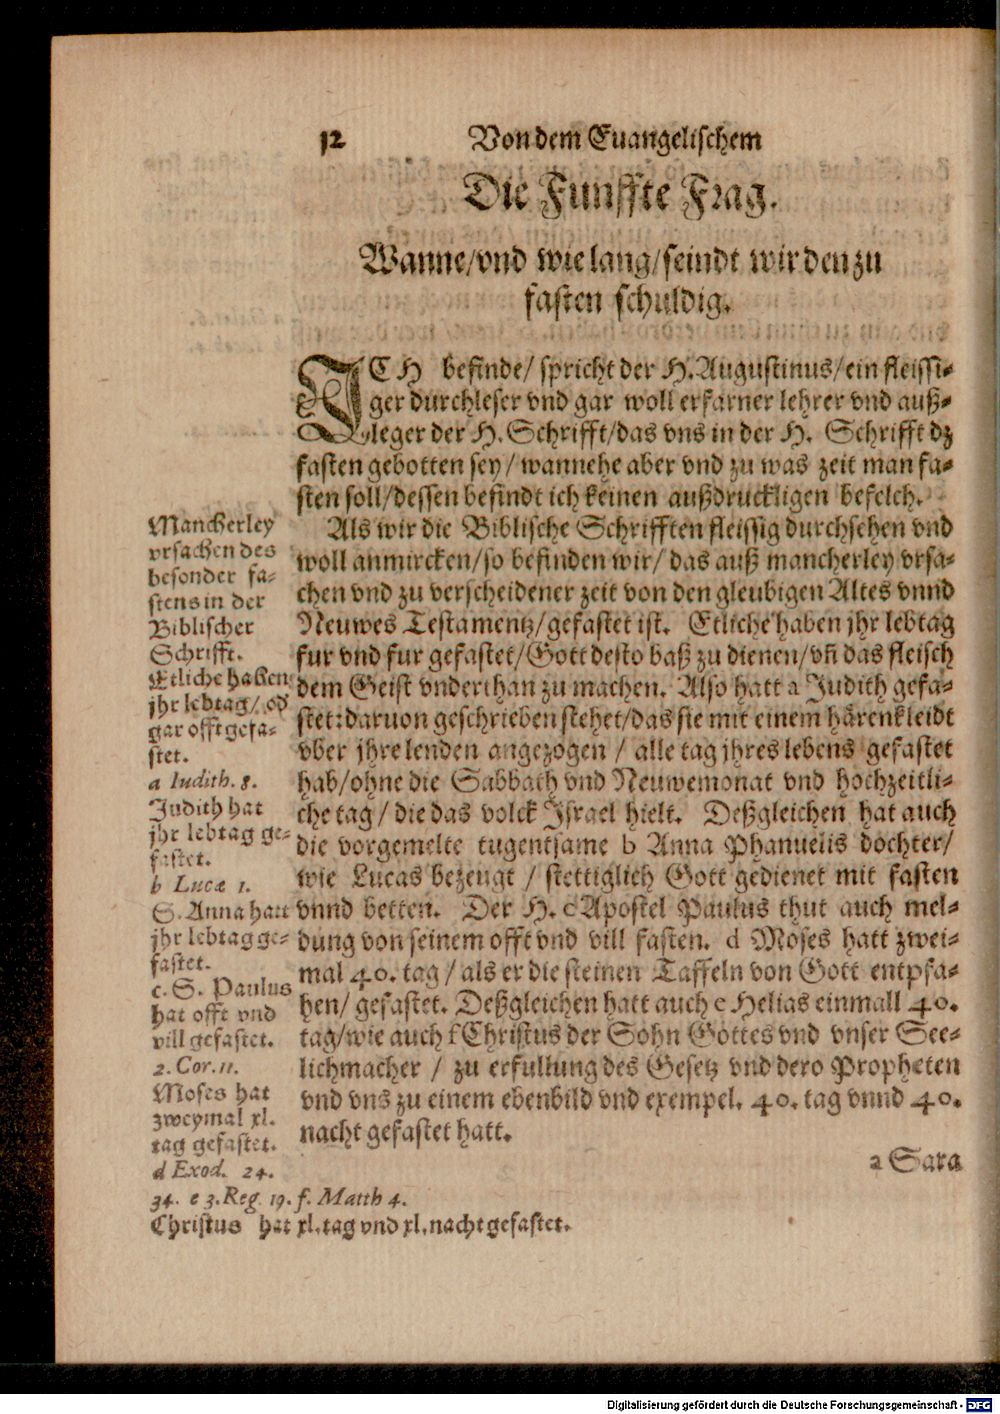 12 Von dem Euangelischem
Die Funffte Frag.
Wanne/vnd wie lang/seindt wir den zu
fasten schuldig.
ICH befinde/ spricht der H. Augustinus/ein fleissi-
ger durchleser vnd gar woll erfarner lehrer vnd auß-
leger der H. Schrifft/das vns in der H. Schrifft dz
fasten gebotten sey/ wannehe aber vnd zu was zeit man fa-
sten soll/dessen befindt ich keinen außdruckligen befelch.
Als wir die Biblische Schrifften fleissig durchsehen vnd
woll anmircken/so befinden wir/ das auß mancherley vrsa-
chen vnd zu verscheidener zeit von den gleubigen Altes vnnd
Neuwes Testamentz/gefastet ist. Etliche haben jhr lebtag
fur vnd fur gefastet/Gott desto baß zu dienen/vñ das fleisch
dem Geist vnderthan zu machen. Also hatt a Judith gefa-
stet: daruon geschrieben stehet/das sie mit einem härenkleidt
vber jhre lenden angezogen / alle tag jhres lebens gefastet
hab/ohne die Sabbath vnd Neuwemonat vnd hochzeitli-
che tag / die das volck Israel hielt. Deßgleichen hat auch
die vorgemelte tugentsame b Anna Phanuelis dochter/
wie Lucas bezeugt / stettiglich Gott gedienet mit fasten
vnnd betten. Der H. c Apostel Paulus thut auch mel-
dung von seinem offt vnd vill fasten. d Moses hatt zwei-
mal 40. tag / als er die steinen Taffeln von Gott entpfa-
hen/ gefastet. Deßgleichen hatt auch e Helias einmall 40.
tag/wie auch f Christus der Sohn Gottes vnd vnser See-
lichmacher / zu erfullung des Gesetz vnd dero Propheten
vnd vns zu einem ebenbild vnd exempel. 40. tag vnnd 40.
nacht gefastet hatt.
a Sara
Mancherley
vrsachen des
besonder fa-
stens in der
Biblischer
Schrifft.
Etliche haben
jhr lebtag/ od
gar offt gefa-
stet.
a Iudith. 8.
Judith hat
jhr lebtag ge-
fastet.
b Lucæ 1.
S. Anna hatt
jhr lebtag ge-
fastet.
c. S. Paulus
hat offt vnd
vill gefastet.
2. Cor. 11.
Moses hat
zweymal xl.
tag gefastet.
d Exod. 24.
34. e 3. Reg. 19. f. Matth 4.
Christus hat xl. tag vnd xl. nacht gefastet.
Digitalisierung gefördert durch die Deutsche Forschungsgemeinschaft - DFG